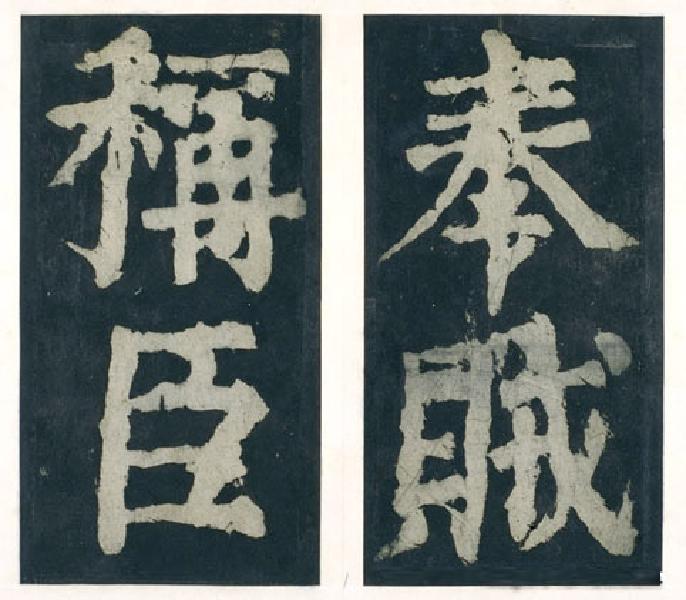 奉賊
稱臣